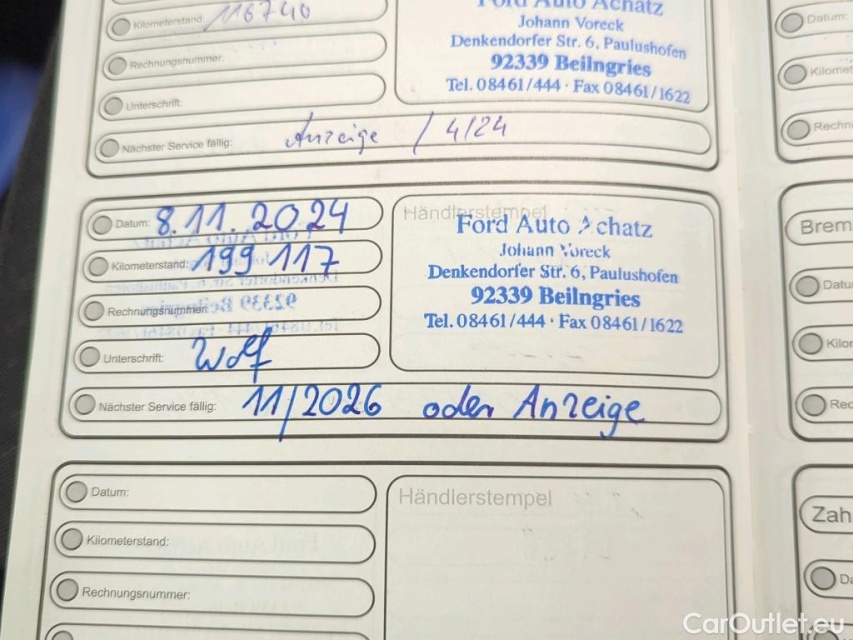 Kilometerstand: 116740
Rechnungsnummer:
Unterschrift:
Nächster Service fällig: Anzeige / 4/24
Ford Auto Achatz
Johann Voreck
Denkendorfer Str. 6, Paulushofen
92339 Beilngries
Tel. 08461/444 · Fax 08461/1622
Datum: 8.11.2024
Kilometerstand: 199 117
Rechnungsnummer:
Unterschrift: Wolf
Nächster Service fällig: 11/2026 oder Anzeige
Händlerstempel
Ford Auto Achatz
Johann Voreck
Denkendorfer Str. 6, Paulushofen
92339 Beilngries
Tel. 08461/444 · Fax 08461/1622
Datum:
Kilometerstand:
Rechnungsnummer:
Händlerstempel
Datum:
Kilomet
Rechn
Brem
Datu
Kilor
Rec
Zah
Da
CarOutlet.eu